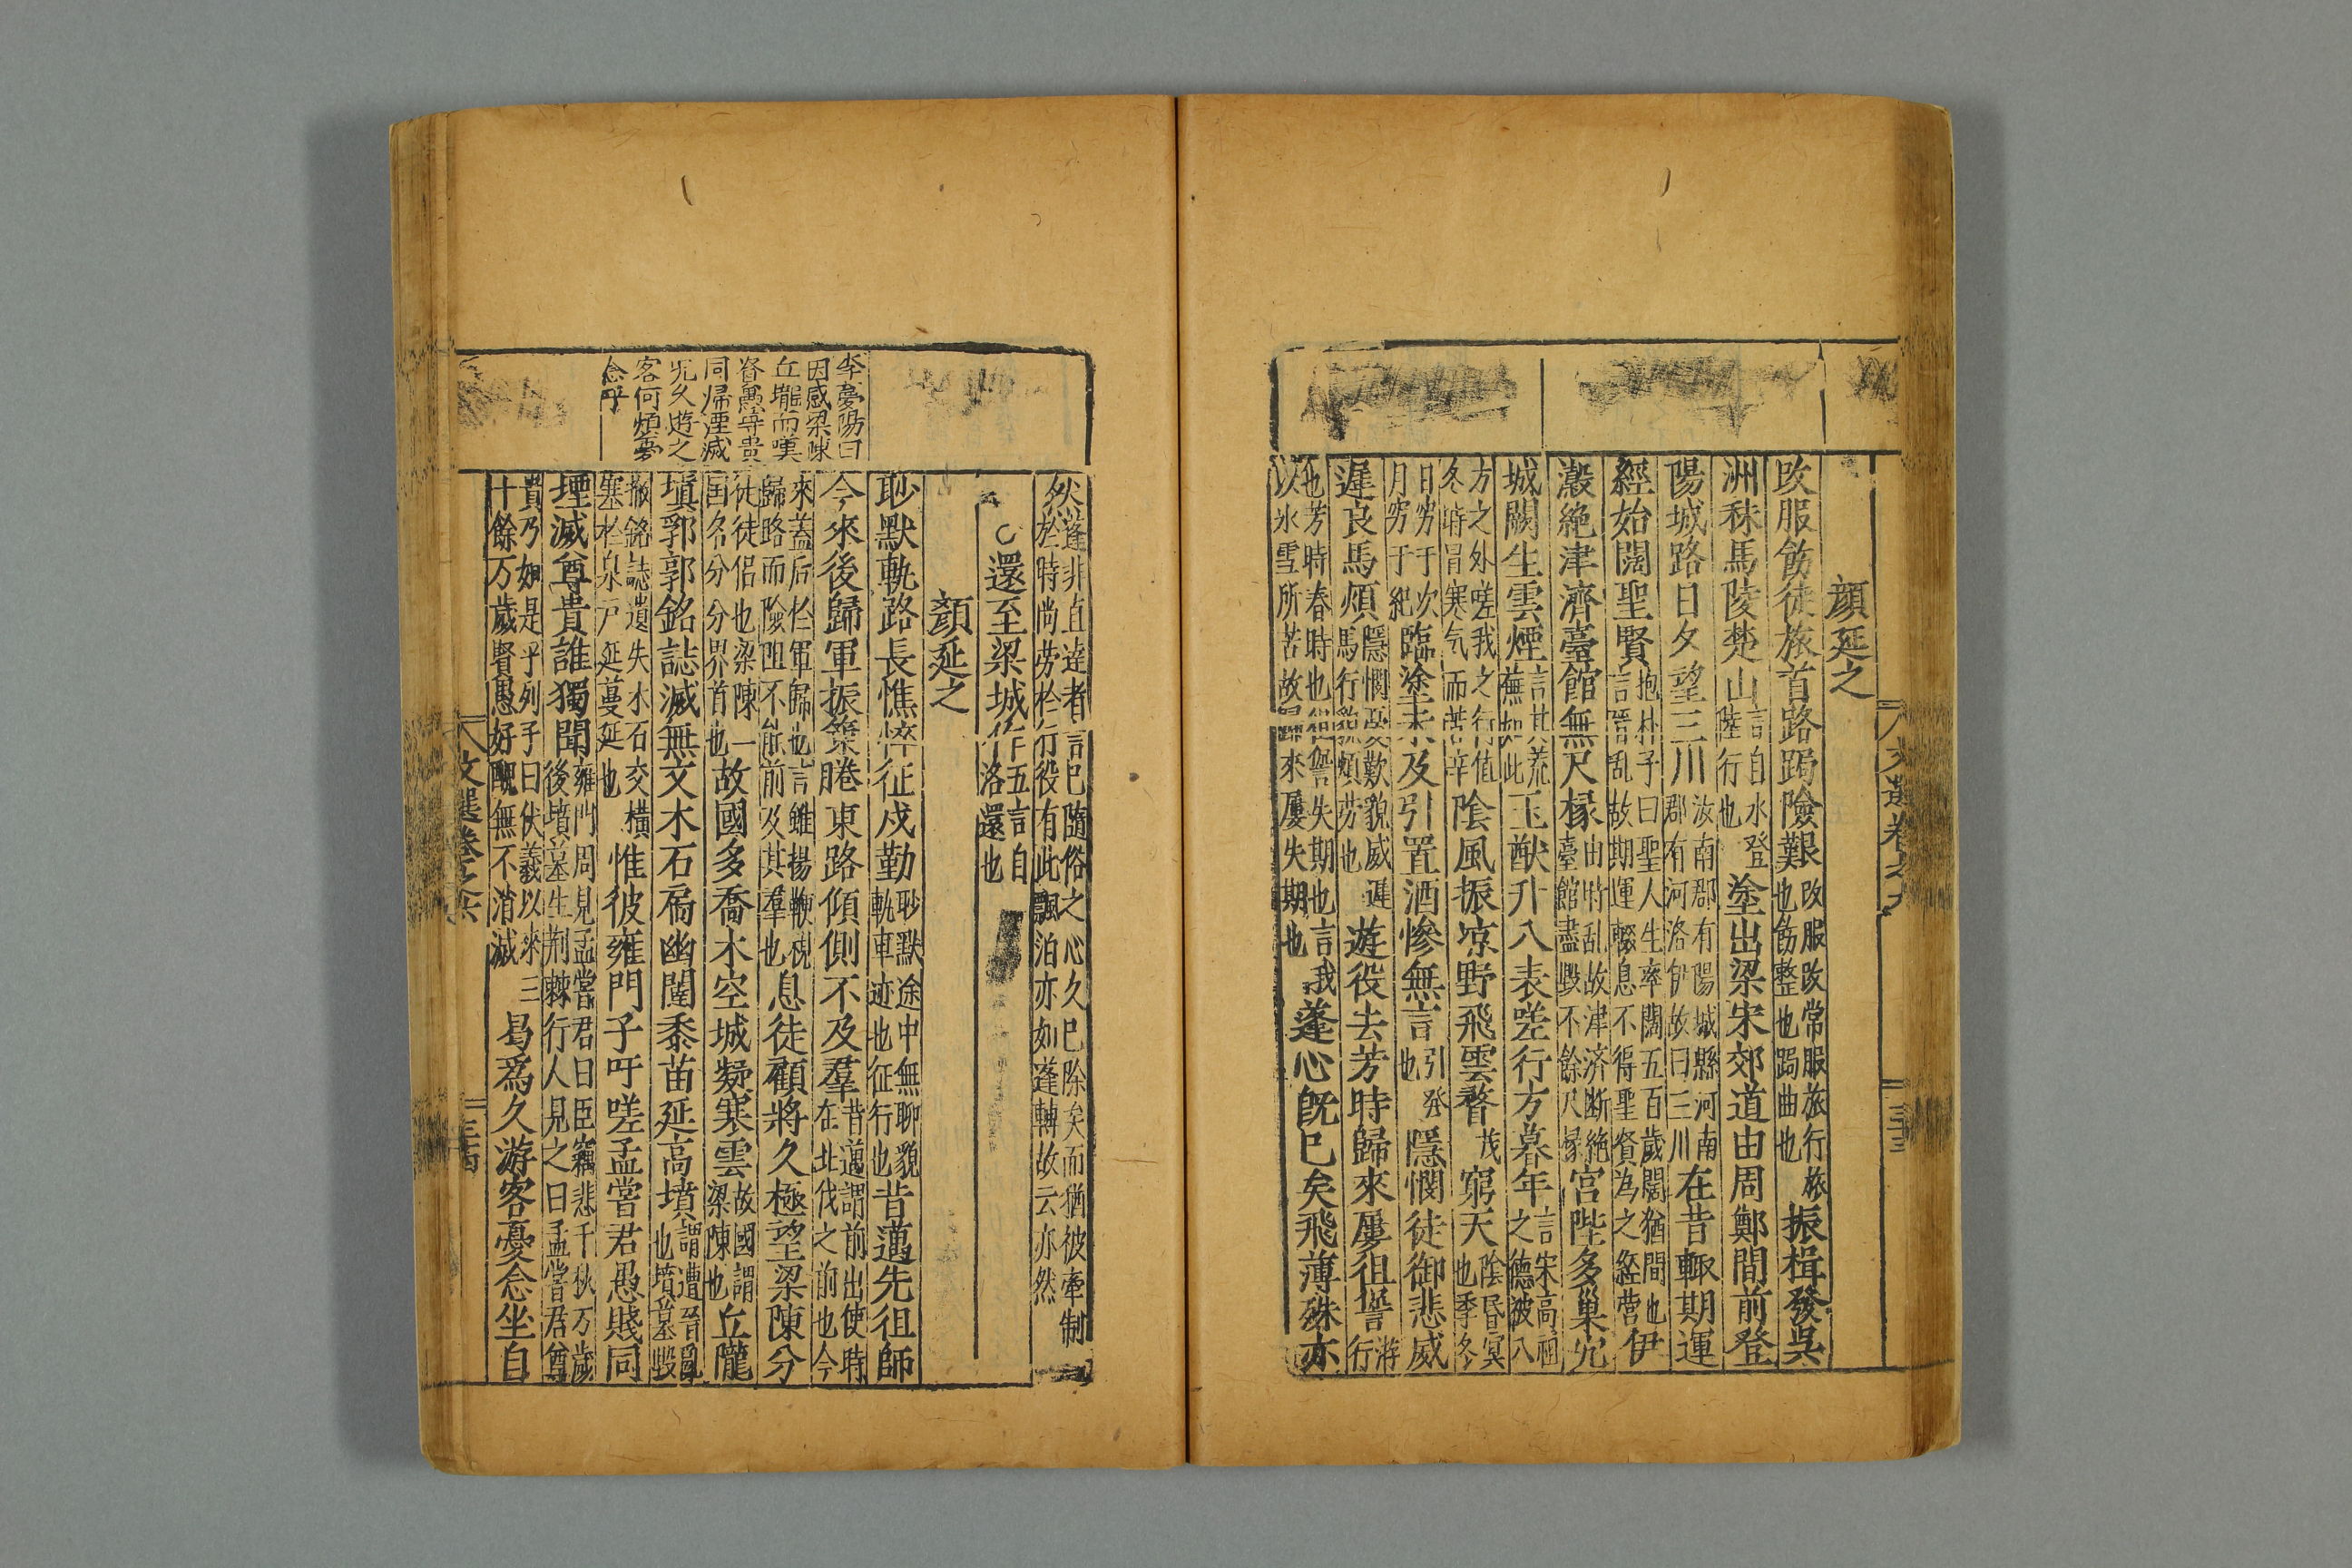 顔延之
改服飭徒旅首路跼險艱改服改常服旅行旅也飭整也跼曲也振楫發吳
洲秣馬陵楚山言自水登陸行也塗出梁宋郊道由周鄭間前登
陽城路日夕望三川汝南郡有陽城縣河南郡有河洛伊故曰三川在昔輟期運
經始闊聖賢抱朴子曰聖人生率闊五百歲闊猶間也言晉乱故期運輟息不得聖賢為之經营伊
瀔絶津濟臺館無尺椽由時乱故津济断絶臺館盡毀不餘尺椽宫陛多巢宂
城闕生雲煙言其荒蕪如此王猷升八表嗟行方暮年言宋高祖之德被八
方之外嗟我之行值冬時冒寒气而苦辛陰風振凉野飛雲瞀茂窮天陰昏冥也季冬
日穷于次月穷于紀臨塗未及引置酒慘無言引發也隱憫徒御悲威
遲良馬煩隱憫憂歎貌威遲馬行貌煩劳也遊役去芳時歸來屢徂諐游行
也芳時春時也徂諐失期也言我以氷雪所苦故歸來屢失期也蓬心既已矣飛薄殊亦
三十三
然蓬非直達者言已隨俗之心久已除矣而猶被牽制於時尚劳於行役有此飄泊亦如蓬轉故云亦然
還至梁城作五言自洛還也
顔延之
眇默軌路長憔悴征戍勤眇默途中無聊貌軌車迹也征行也昔邁先徂師
今來後歸軍振策睠東路傾側不及羣昔邁謂前出使時在北伐之前也今
來蓋后於軍歸也言雖揚鞭視歸路而險阻不能前及其羣也息徒顧將久極望梁陳分
徒徒侣也梁陳二国名分分界首也故國多喬木空城凝寒雲故國謂梁陳也丘隴
塡郛郭銘誌滅無文木石扃幽闥黍苗延高墳謂遭晉亂也墳墓毀
撤銘誌遺失木石交橫塞於泉户延蔓延也惟彼雍門子吁嗟孟嘗君愚賤同
堙滅尊貴誰獨聞雍門周見孟嘗君曰臣竊悲千秋万歲後墳墓生荆棘行人見之曰孟嘗君尊
貴乃如是乎列子曰伏羲以來三十餘万歲賢愚好醜無不消滅曷爲久游客憂念坐自
文選卷之六
三十四
李夢陽曰
因感梁陳
丘壠而嘆
賢愚等貴
同帰湮滅
況久遊之
客何煩憂
念乎